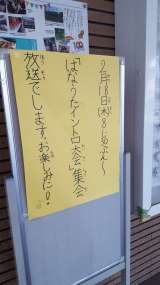 月18日(木)8じ ぷん〜
「はなうたイントロ大会」集会
放送でします。お楽しみに!